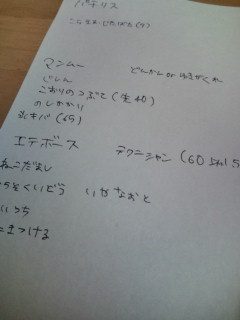 パチリス
マンムー どんかん or ゆきがくれ
じしん
こおりのつぶて(先40)
のしかかり
氷キバ(65)
エテボース テクニシャン(60
ねこだまし
うそくいどう いやなおと
いうち
たきつける